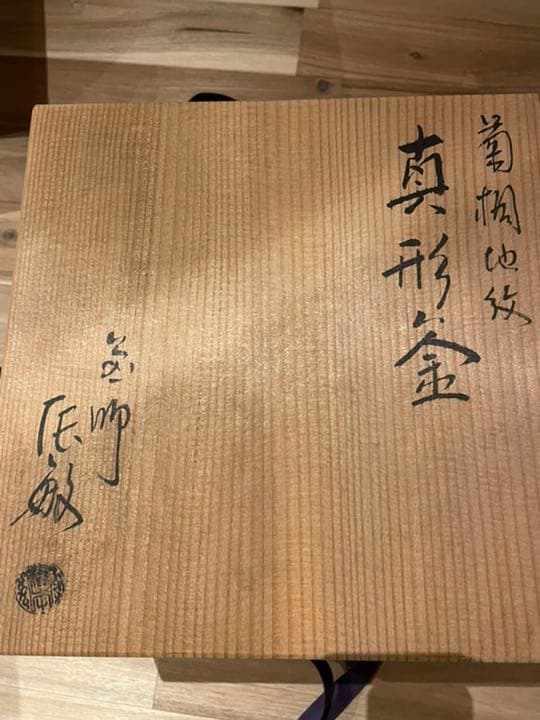 菊桐地紋
真形釜
釜師